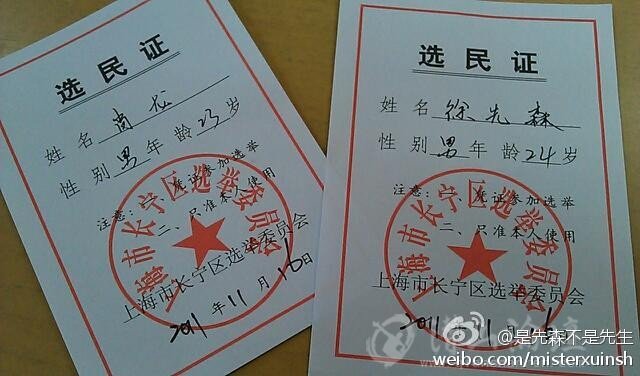 选民证
姓名 肖龙
性别 男 年龄 23 岁
注意:一、凭证参加选举
二、只准本人使用
上海市长宁区选举委员会
2011年11月16日
上海市长宁区选举委员会
选民证
姓名 徐先森
性别 男 年龄 24 岁
注意:一、凭证参加选举
二、只准本人使用
上海市长宁区选举委员会
2011年11月16日
上海市长宁区选举委员会
@是先森不是先生
weibo.com/misterxuinsh